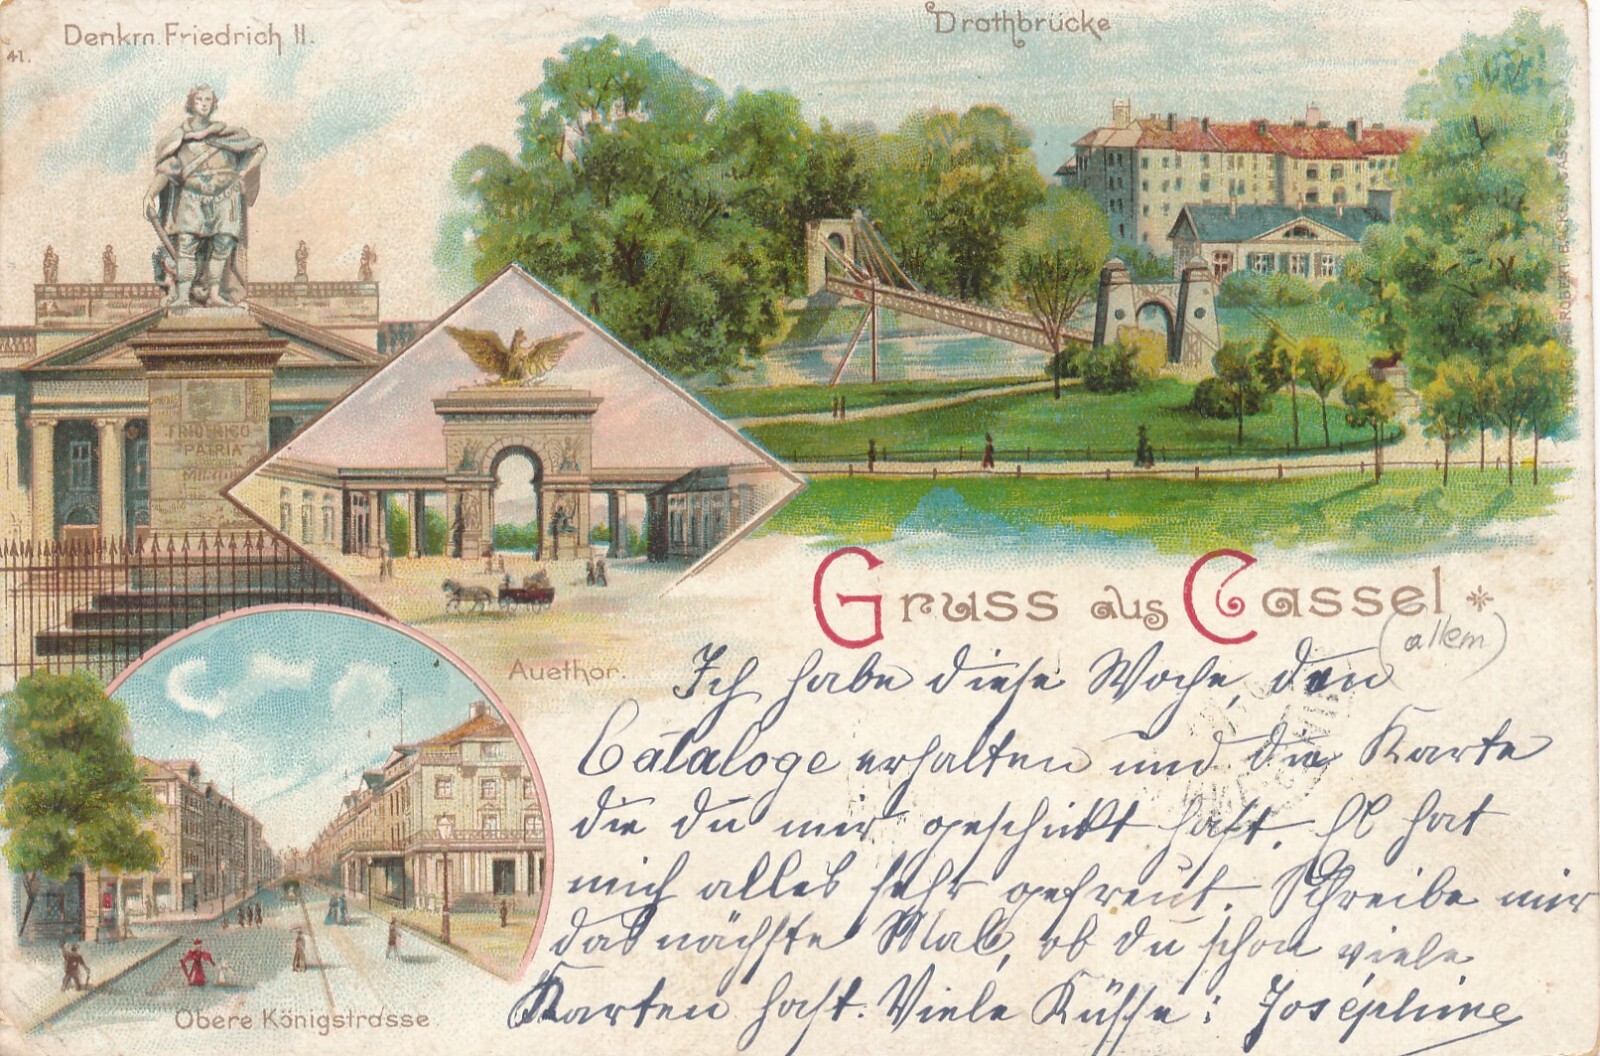 Denkm. Friedrich II.
41.
Drathbrücke
FRIDERICO
PATRIA
ROBERT BACKER, CASSEL
Auethor.
Obere Königstrasse
Gruss aus Cassel
(allem)
Ich habe diese Woche, den
Cataloge erhalten und die Karte
die du mir geschickt hast. Es hat
mich alles sehr gefreut. Schreibe mir
das nächste Mal, ob du schon viele
Karten hast. Viele Küsse: Joséphine